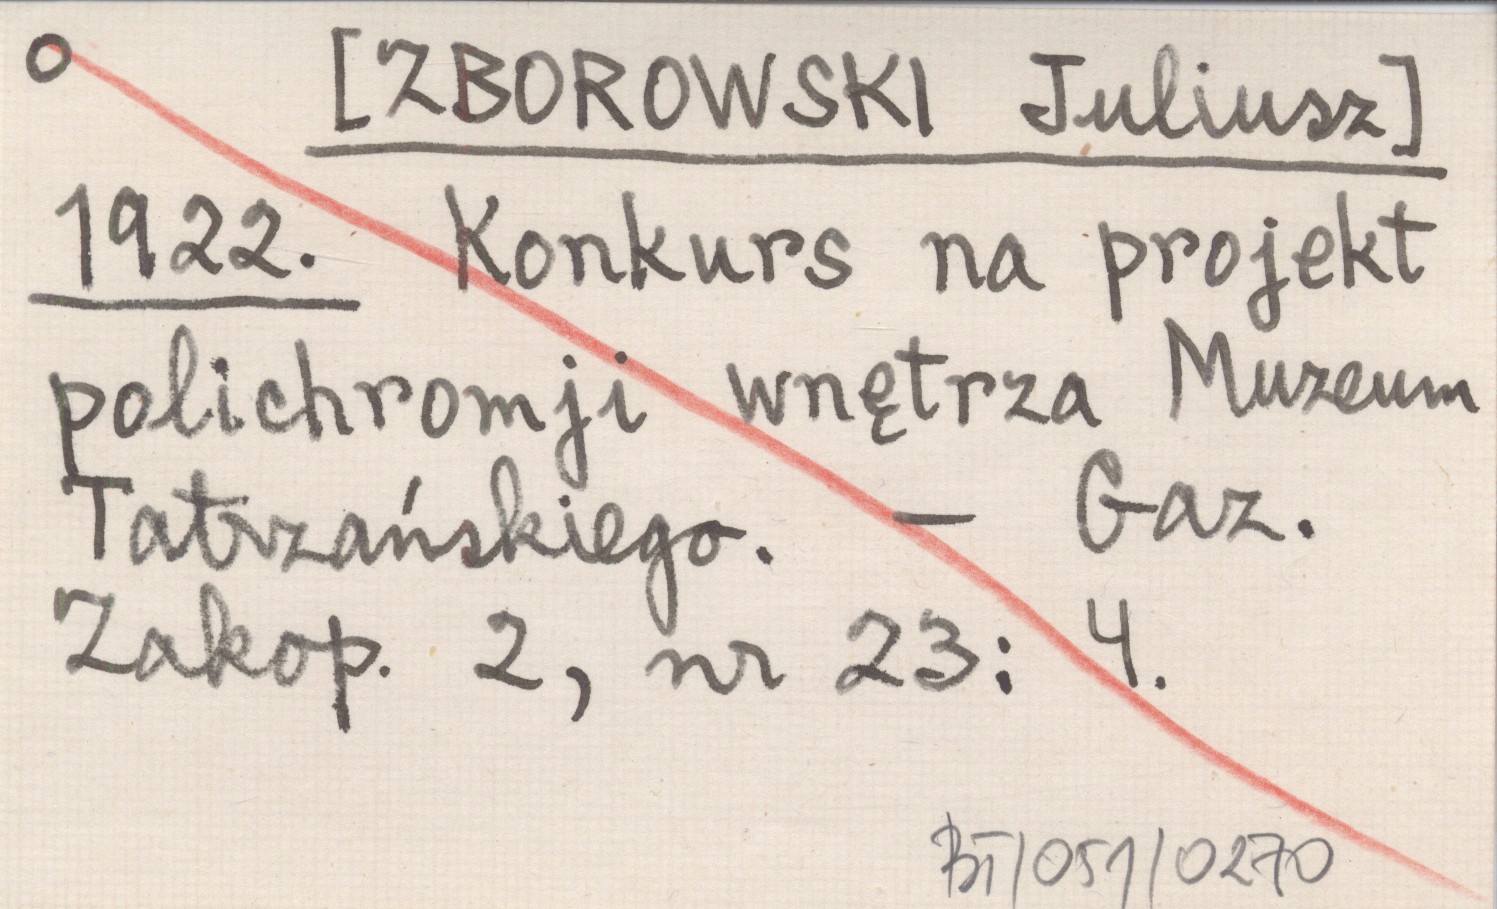 o [ZBOROWSKI Juliusz]
1922. Konkurs na projekt
polichromji wnętrza Muzeum
Tatrzańskiego. — Gaz.
Zakop. 2, nr 23: 4.
BT/051/0270